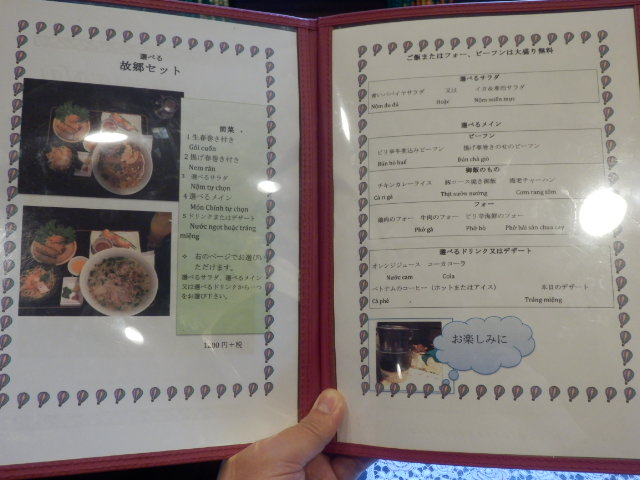 選べる
故郷セット
前菜
1 生春巻き付き
Gỏi cuốn
2 揚げ春巻き付き
Nem rán
3 選べるサラダ
Nộm tự chọn
4 選べメイン
Món Chính tự chọn
5 ドリンクまたはデザート
Nước ngọt hoặc tráng
miệng
❖ 右のページでお選びい
ただけます。
選べるサラダ、選べるメイン
又は選べるドリンクから一つ
をお選び下さい。
円+税
ご飯またはフォー、ビーフンは大盛り無料
選べるサラダ
青いパパイヤサラダ 又は イカ&寿司サラダ
Nộm đu đủ Hoặc Nộm miến mực
選べるメイン
ビーフン
ピリ辛牛煮込みビーフン 揚げ春巻きのせのビーフン
Bún bò huế Bún chả giò
御飯のもの
チキンカレーライス 豚ロース焼き御飯 海老チャーハン
Cà ri gà Thịt sườn nướng Cơm rang tôm
フォー
鶏肉のフォー 牛肉のフォー ピリ辛海鮮のフォー
Phở gà Phở bò Phở hải sản chua cay
選べるドリンク又はデザート
オレンジジュース コーカコーラ
Nước cam Cola
ベトナムのコーヒー(ホットまたはアイス) 本日のデザート
Cà phê Tráng miệng
お楽しみに